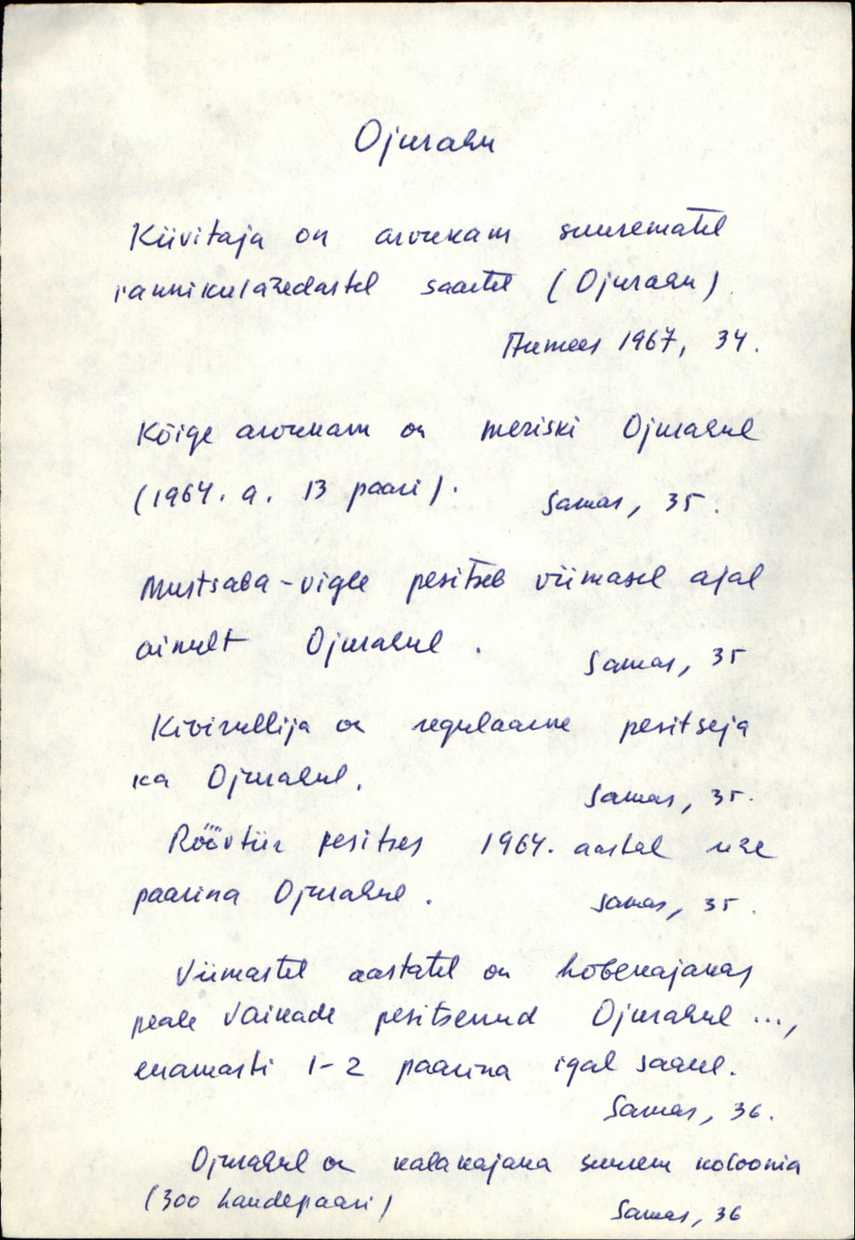 Ojurahu
Kiivitaja on arvukam suurematel
rannikulähedastel saartel (Ojurahu).
Aumees 1967, 34.
Kõige arvukam on meriski Ojurahul
(1964. a. 13 paari).
Samas, 35.
Mustsaba-vigle pesitseb viimasel ajal
ainult Ojurahul.
Samas, 35
Kivirullija on regulaarne pesitseja
ka Ojurahul.
Samas, 35.
Röövtiir pesitses 1964. aastal ühe
paarina Ojurahul.
Samas, 35.
Viimastel aastatel on hõbekajakas
peale Vaikade pesitsenud Ojurahul ...,
enamasti 1-2 paarina igal saarel.
Samas, 36.
Ojurahul on kalakajaka suurem koloonia
(300 haudepaari)
Samas, 36